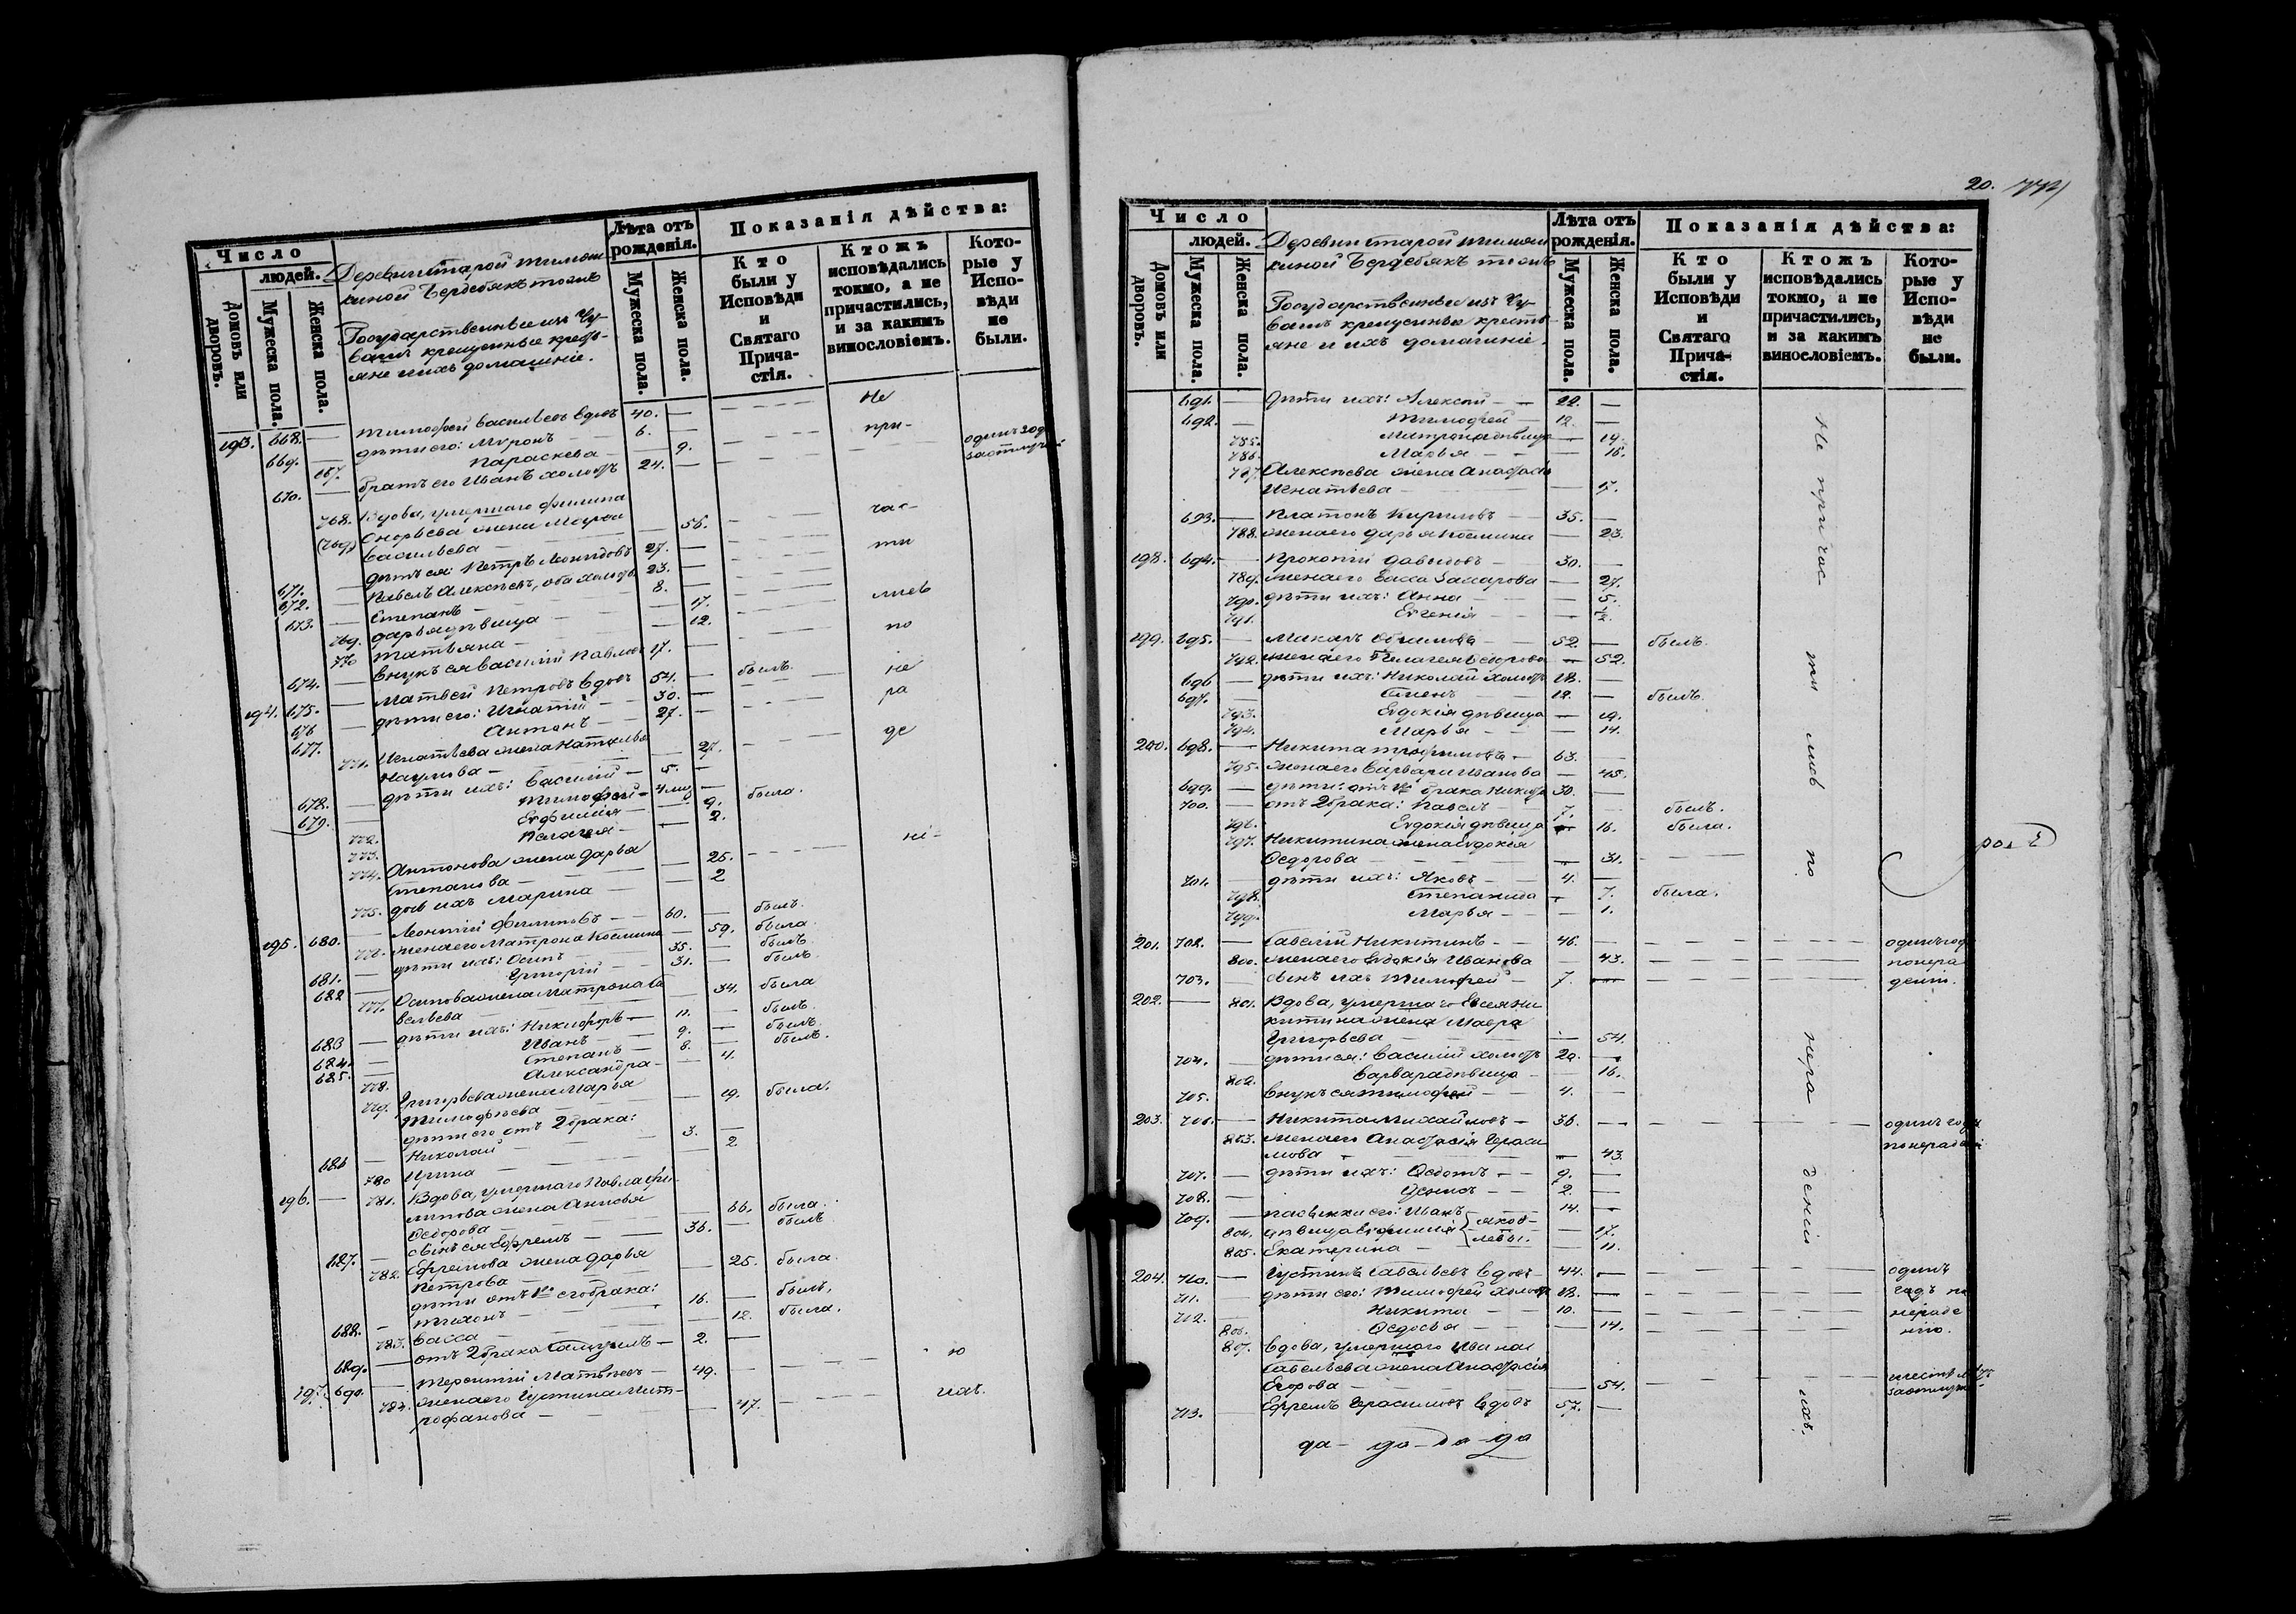 Число
людей.
Домовъ или дворовъ.
Мужеска пола.
Женска пола.
Деревни Старой Тимош-
киной Бердебякъ тожъ
Государственные изъ Чу-
вашъ крещеные кресть-
яне и ихъ домашніе.
Лѣта отъ рожденія.
Мужеска пола.
Женска пола.
Показанія дѣйства:
Кто были у Исповѣди и Святаго Прича-стія.
Ктожъ исповѣдались токмо, а не причастились, и за какимъ винословіемъ.
Кото-рые у Испо-вѣди не были.
193. 668. — Тимофей Васильевъ вдовъ 40. — Не
669. — дѣти его: Миронъ — 6. — при-
767. Параскева — 9.
670. — братъ его Иванъ холостъ 24. —
768. Вдова, умершаго Филипа
жена
Васильева — 56. — час-
671. — дѣти ея: Петръ 27. — ти
672. — Павелъ 23. —
673. — Степанъ — 8. —
769. Дарья дѣвица — 17. лись
770 Татьяна — 12.
674. — внукъ ея Василій 17. — по
194. 675. — Матвей Петровъ вдовъ 54. — былъ. не
676 — дѣти его: Игнатій — 30. — ра
677. Антонъ — 27. —
771. Игнатьева жена Наталья
Наумова — 27. де
678. — дѣти ихъ: Василій — 5. —
679. — Тимофей —
772. Евфимія — 9. была.
773. Пелагея — 2.
774. Антонова жена Дарья
Степанова — 25. ні-
775. дочь ихъ Марина — 2
195. 680. — Леонтій Филиповъ — 60. — былъ.
776. жена его Матрона Космина — 59. была.
681. — дѣти ихъ: Осипъ — 35. — былъ.
682 — Григорій — 31. — былъ.
777. Осипова жена Матрона Са
вельева — 34. была
683 — дѣти ихъ: Никифоръ — 11. — былъ.
684. — Иванъ — 9. — былъ.
685. — Степанъ — 8. — былъ.
778. Александра — 4.
779. Григорьева жена Марья
Тимофѣева — 19. была.
дѣти его отъ 2 брака:
686 — Николай — 3. —
780 Ирина — 2
196. — 781. Вдова, умершаго Павла Фи-
липова жена
Ѳедорова — 66. была.
687. — сынъ ея Ефремъ — 36. — былъ
782. Ефремова жена Дарья
Петрова — 25. была.
дѣти отъ 1го его брака:
688. — Тихонъ — 16. — былъ.
783. Васса — 12. была.
689. — отъ 2 брака Самуилъ — 2. —
197. 690. — Терентій Матвѣевъ — 49. — ю
784. жена его Густина Мит-
рофанова — 47. ихъ.
20.
Число
людей.
Домовъ или дворовъ.
Мужеска пола.
Женска пола.
Деревни Старой Тимош
киной Бердебякъ тожъ
Государственные изъ Чу-
вашъ крещеные кресть-
яне и ихъ домашніе.
Лѣта отъ рожденія.
Мужеска пола.
Женска пола.
Показанія дѣйства:
Кто были у Исповѣди и Святаго Прича-стія.
Ктожъ исповѣдались токмо, а не причастились, и за какимъ винословіемъ.
Кото-рые у Испо-вѣди не были.
Не причас ти лись по нера дѣнію ихъ.
691. — дѣти ихъ: Алексѣй — 22. —
692. — Тимофей — 12. —
785. Матрона дѣвица — 19.
786. Марья — 16.
787. Алексѣева жена Анастасія
Игнатьева — 17.
693. — Платонъ Кириловъ — 35. —
788. жена его Дарья Космина — 23.
198. 694. — Прокопій Давыдовъ — 30. —
789. жена его Васса Захарова — 27.
790. дѣти ихъ: Анна — 5.
791. Евгенія — ½.
199. 695. — Макаръ — 52. — былъ.
792. жена его Пелагея Ѳедорова — 52.
696 — дѣти ихъ: Николай холостъ 18. —
697. — Семенъ — 12. — былъ.
793. Евдокія дѣвица — 19.
794. Марья — 14.
200. 698. — Никита Трофимовъ — 63. —
795. жена его Варвара Иванова — 45.
699. — дѣти: отъ 1го брака Никита 30. —
700. — отъ 2 брака: Павелъ — 7. — былъ.
796. Евдокія дѣвица — 16. была.
797. Никитина жена Евдокія
Ѳедорова — 31.
701. — дѣти ихъ: Яковъ — 4. —
798. Степанида — 7. была.
799. Марья — 1.
201. 702. — Савелій Никитинъ — 46. — одинъ годъ
800. жена его Евдокія Иванова — 43. понера
703. — сынъ ихъ Тимофей — 7. — денію.
202. — 801. Вдова, умершаго Евсея Ни
китина жена Мавра
Григорьева — 54.
704. — дѣти ея: Василій холостъ 20. —
802. Варвара дѣвица — 16.
705. — внукъ ея Тимофей — 4. —
203. 706. — Никита Михайловъ — 36. — одинъ годъ
803. жена его Анастасія Гераси
мова — 43. понерадѣнію
707. — дѣти ихъ: Ѳедотъ — 9. —
708. — Денисъ — 2. —
709. — пасынки его: Иванъ 14. —
804. дѣвица Евфимія } Яков- — 17.
805. Екатерина — } левы. — 11.
204. 710. — Густинъ Савельевъ вдовъ — 44. — одинъ
711. — дѣти его: Тимофей холостъ 18. — годъ по
712. — Никита — 10. — нераде
806. Ѳедосья — 14. нію.
807. Вдова, умершаго Ивана
Савельева жена Анастасія
Егорова — 54.
713. Ефремъ Герасимовъ вдовъ 57. —